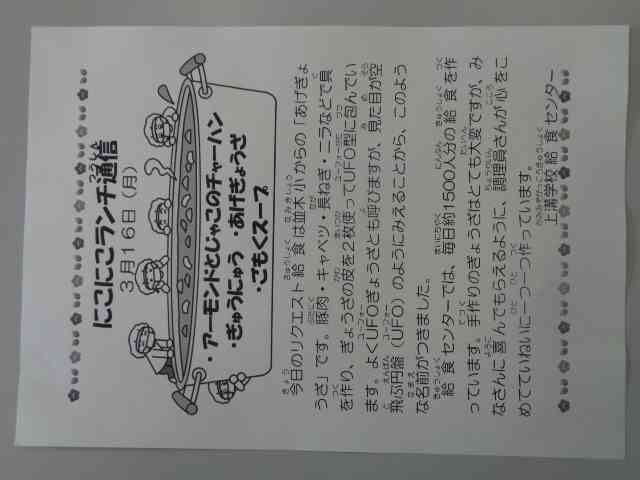 にこにこランチ通信
3月16日（月）
・アーモンドとじゃこのチャーハン
・ぎゅうにゅう ・あげぎょうざ
・ごもくスープ
今日のリクエスト給食は並木小からの「あげぎょ
うざ」です。豚肉・キャベツ・長ねぎ・ニラなどで具
を作り、ぎょうざの皮を2枚使ってUFO型に包んでい
ます。よくUFOぎょうざとも呼びますが、見た目が空
飛ぶ円盤（UFO）のようにみえることから、このよう
な名前がつきました。
給食センターでは、毎日約1500人分の給食を作
っています。手作りのぎょうざはとても大変ですが、み
なさんに喜んでもらえるように、調理員さんが心をこ
めてていねいに一つ一つ作っています。
上溝学校給食センター